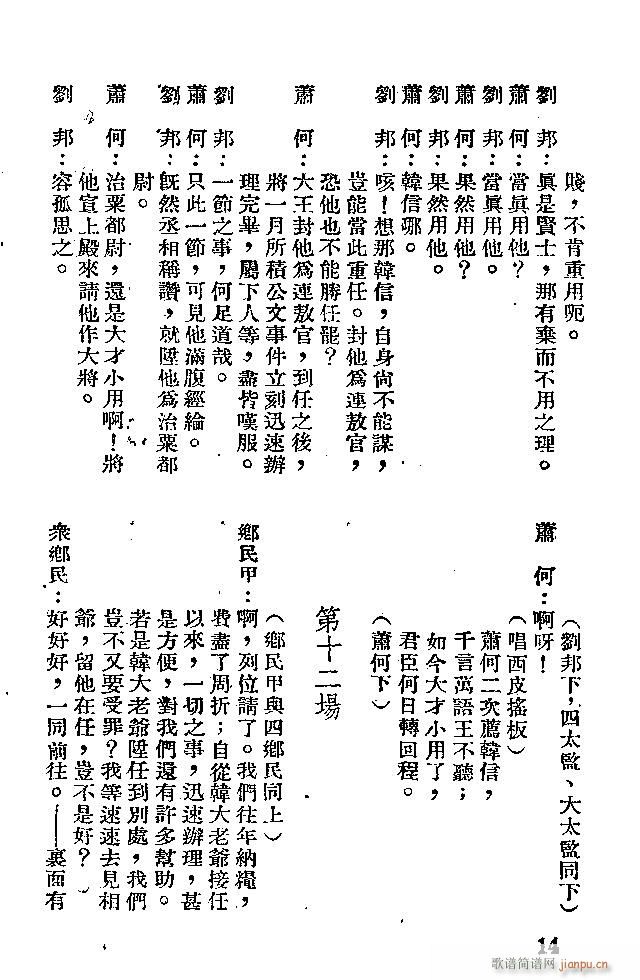 賤，不肯重用呃。
劉　邦：眞是賢士，那有棄而不用之理。
蕭　何：當眞用他？
劉　邦：當眞用他。
蕭　何：果然用他？
劉　邦：果然用他。
蕭　何：韓信哪。
劉　邦：咳！想那韓信，自身尙不能謀，
豈能當此重任。封他爲連敖官，
恐他也不能勝任罷？
蕭　何：大王封他爲連敖官，到任之後，
將一月所積公文事件立刻迅速辦
理完畢，颺下人等，盡皆嘆服。
劉　邦：一節之事，何足道哉。
蕭　何：只此一節，可見他滿腹經綸。
劉　邦：旣然丞相稱讚，就陞他爲治粟都
尉。
蕭　何：治粟都尉，還是大才小用啊！將
他宣上殿來請他作大將。
劉　邦：容孤思之。
（劉邦下，四太監、大太監同下）
蕭　何：啊呀！
（唱西皮搖板）
蕭何二次薦韓信，
千言萬語王不聽；
如今大才小用了，
君臣何日轉回程。
（蕭何下）
第十二場
（鄉民甲與四鄉民同上）
鄉民甲：啊，列位請了。我們往年納糧，
費盡了周折；自從韓大老爺接任
以來，一切之事，迅速辦理，甚
是方便，對我們還有許多幫助。
若是韓大老爺陞任到別處，我們
豈不又要受罪？我等速速去見相
爺，留他在任，豈不是好？
衆鄉民：好好好，一同前往。——裏面有
14
歌谱简谱网
jianpu.cn